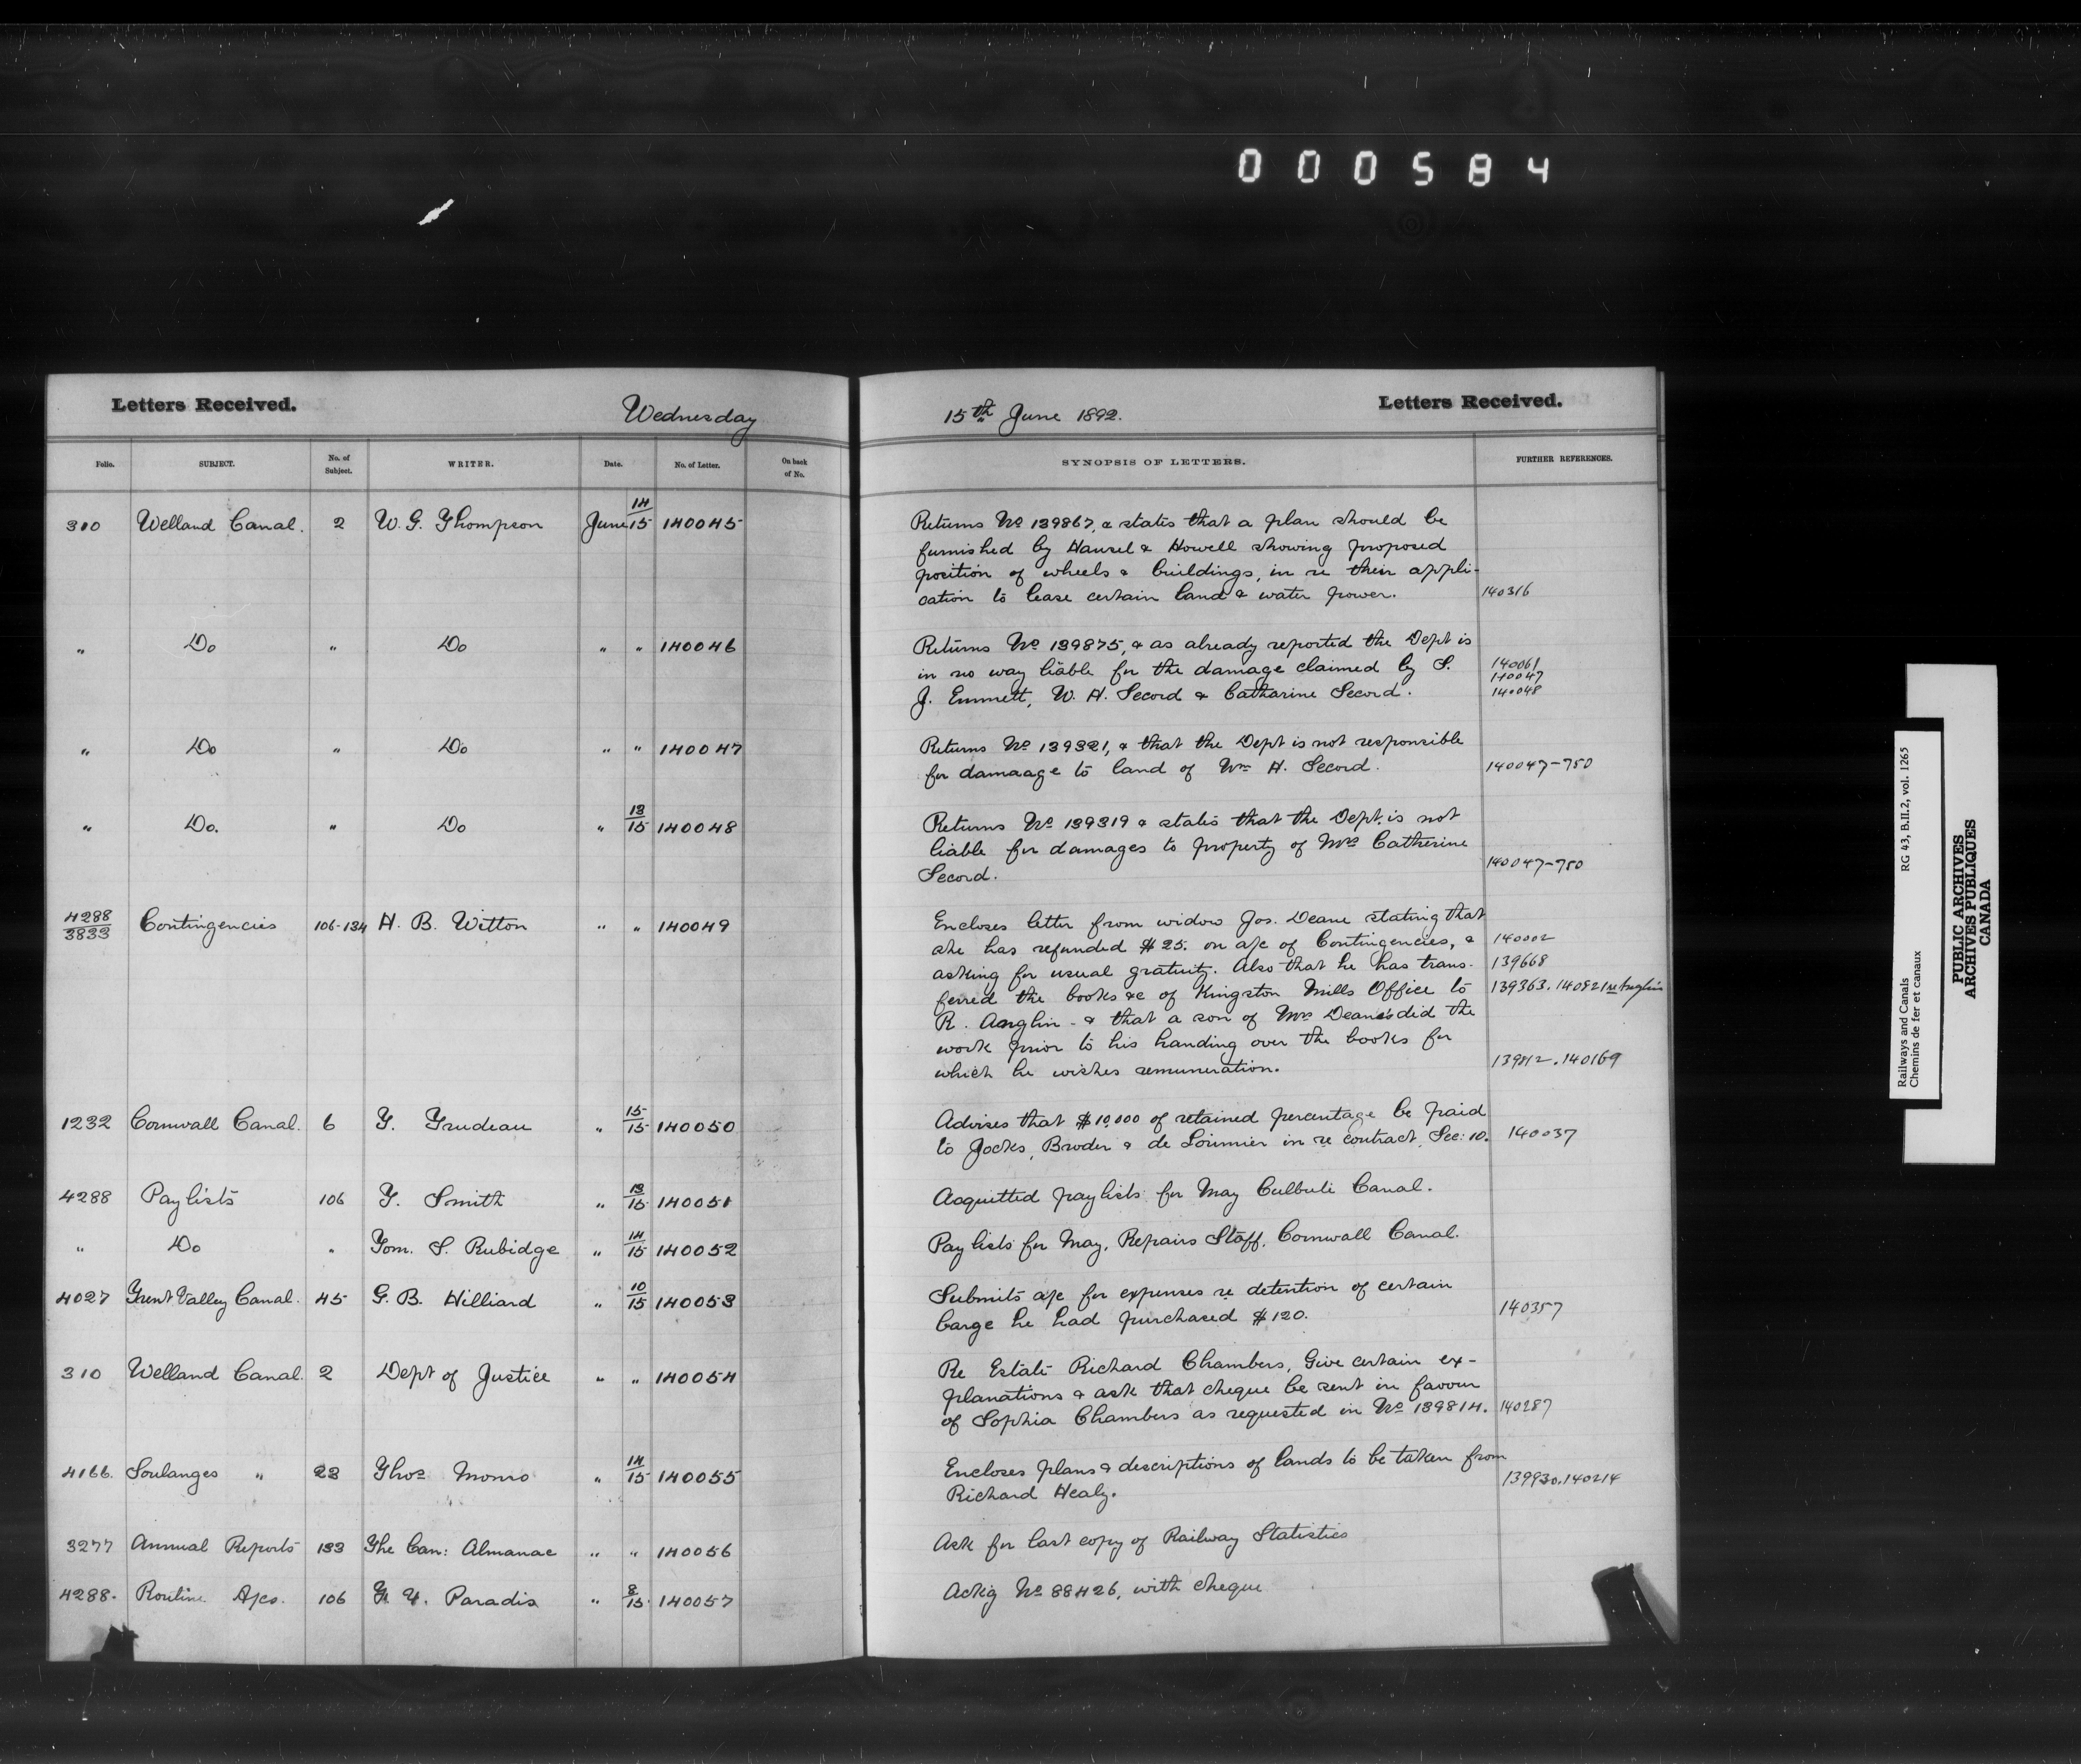 000584
Letters Received.
Wednesday
15th June 1892.
Letters Received.
Folio. SUBJECT. No. of Subject. WRITER. Date. No. of Letter. On back of No. SYNOPSIS OF LETTERS. FURTHER REFERENCES.
310 Welland Canal. 2 W. G. Thompson June 14/15 140045
Returns No 139867, & states that a plan should be
furnished by Hansel & Howell showing proposed
position of wheels & buildings, in re their appli-
cation to lease certain land & water power. 140316
" Do " Do " " 140046
Returns No 139875, & as already reported the Dept is
in no way liable for the damage claimed by S. 140061
140047
J. Emmett, W. H. Secord & Catharine Secord. 140048
" Do " Do " " 140047
Returns No 139321, & that the Dept is not responsible
for damaage to land of Wm H. Secord. 140047-750
" Do. " Do " 13/15 140048
Returns No 139319 & states that the Dept. is not
liable for damages to property of Mrs Catherine
Secord. 140047-750
4288/3833 Contingencies 106-134 H. B. Witton " " 140049
Encloses letter from widow Jos. Deane stating that
she has refunded $25. on a/c of Contingencies, & 140002
asking for usual gratuity. Also that he has trans- 139668
ferred the books &c of Kingston Mills Office to 139363. 140821 re Anglin
R. Anglin - & that a son of Mrs Deane's did the
work prior to his handing over the books for
which he wishes remuneration. 139812. 140169
1232 Cornwall Canal. 6 T. Trudeau " 15/15 140050
Advises that $10,000 of retained percentage be paid
to Jocks, Broder & de Lorimier in re contract, Sec: 10. 140037
4288 Pay lists 106 T. Smith " 13/15 140051
Acquitted pay lists for May Culbute Canal.
" Do " Tom. S. Rubidge " 14/15 140052
Pay lists for May, Repairs Staff, Cornwall Canal.
4027 Trent Valley Canal. 45 G. B. Hilliard " 10/15 140053
Submits a/c for expenses re detention of certain
barge he had purchased $120. 140357
310 Welland Canal. 2 Dept of Justice " " 140054
Re Estate Richard Chambers, Give certain ex-
planations & ask that cheque be sent in favour
of Sophia Chambers as requested in No 139814. 140287
4166. Soulanges " 23 Thos Monro " 14/15 140055
Encloses plans & descriptions of lands to be taken from
Richard Healy. 139930. 140214
3277 Annual Reports 133 The Can: Almanac " " 140056
Ask for last copy of Railway Statistics
4288. Routine A/cs. 106 Paradis " 8/15 140057
Ackig No 88426, with cheque
Railways and Canals RG 43, B.II.2, vol. 1265
Chemins de fer et canaux
PUBLIC ARCHIVES
ARCHIVES PUBLIQUES
CANADA